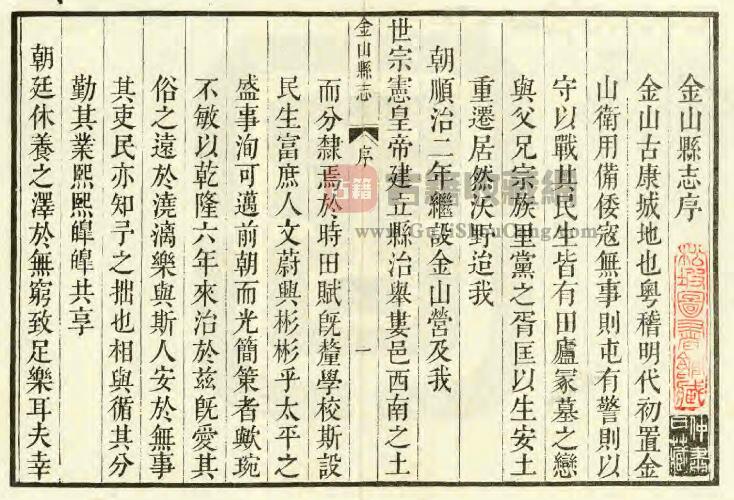 金山縣志序
金山古康城地也粵稽明代初置金
山衛用備倭寇無事則屯有警則以
守以戰其民生皆有田廬冢墓之戀
與父兄宗族里黨之胥匡以生安土
重遷居然泱野迨我
朝順治二年繼設金山營及我
世宗憲皇帝建立縣治舉婁邑西南之土
金山縣志 序 一
而分隸焉於時田賦旣釐學校斯設
民生富庶人文蔚興彬彬乎太平之
盛事洵可邁前朝而光簡策者歟琬
不敏以乾隆六年來治於茲旣愛其
俗之遠於澆漓樂與斯人安於無事
其吏民亦知予之拙也相與循其分
勤其業熙熙皥皥共享
朝廷休養之澤於無窮致足樂耳夫幸
松坡圖書館藏
古籍
古籍收藏網
www.GuJiShouCang.com